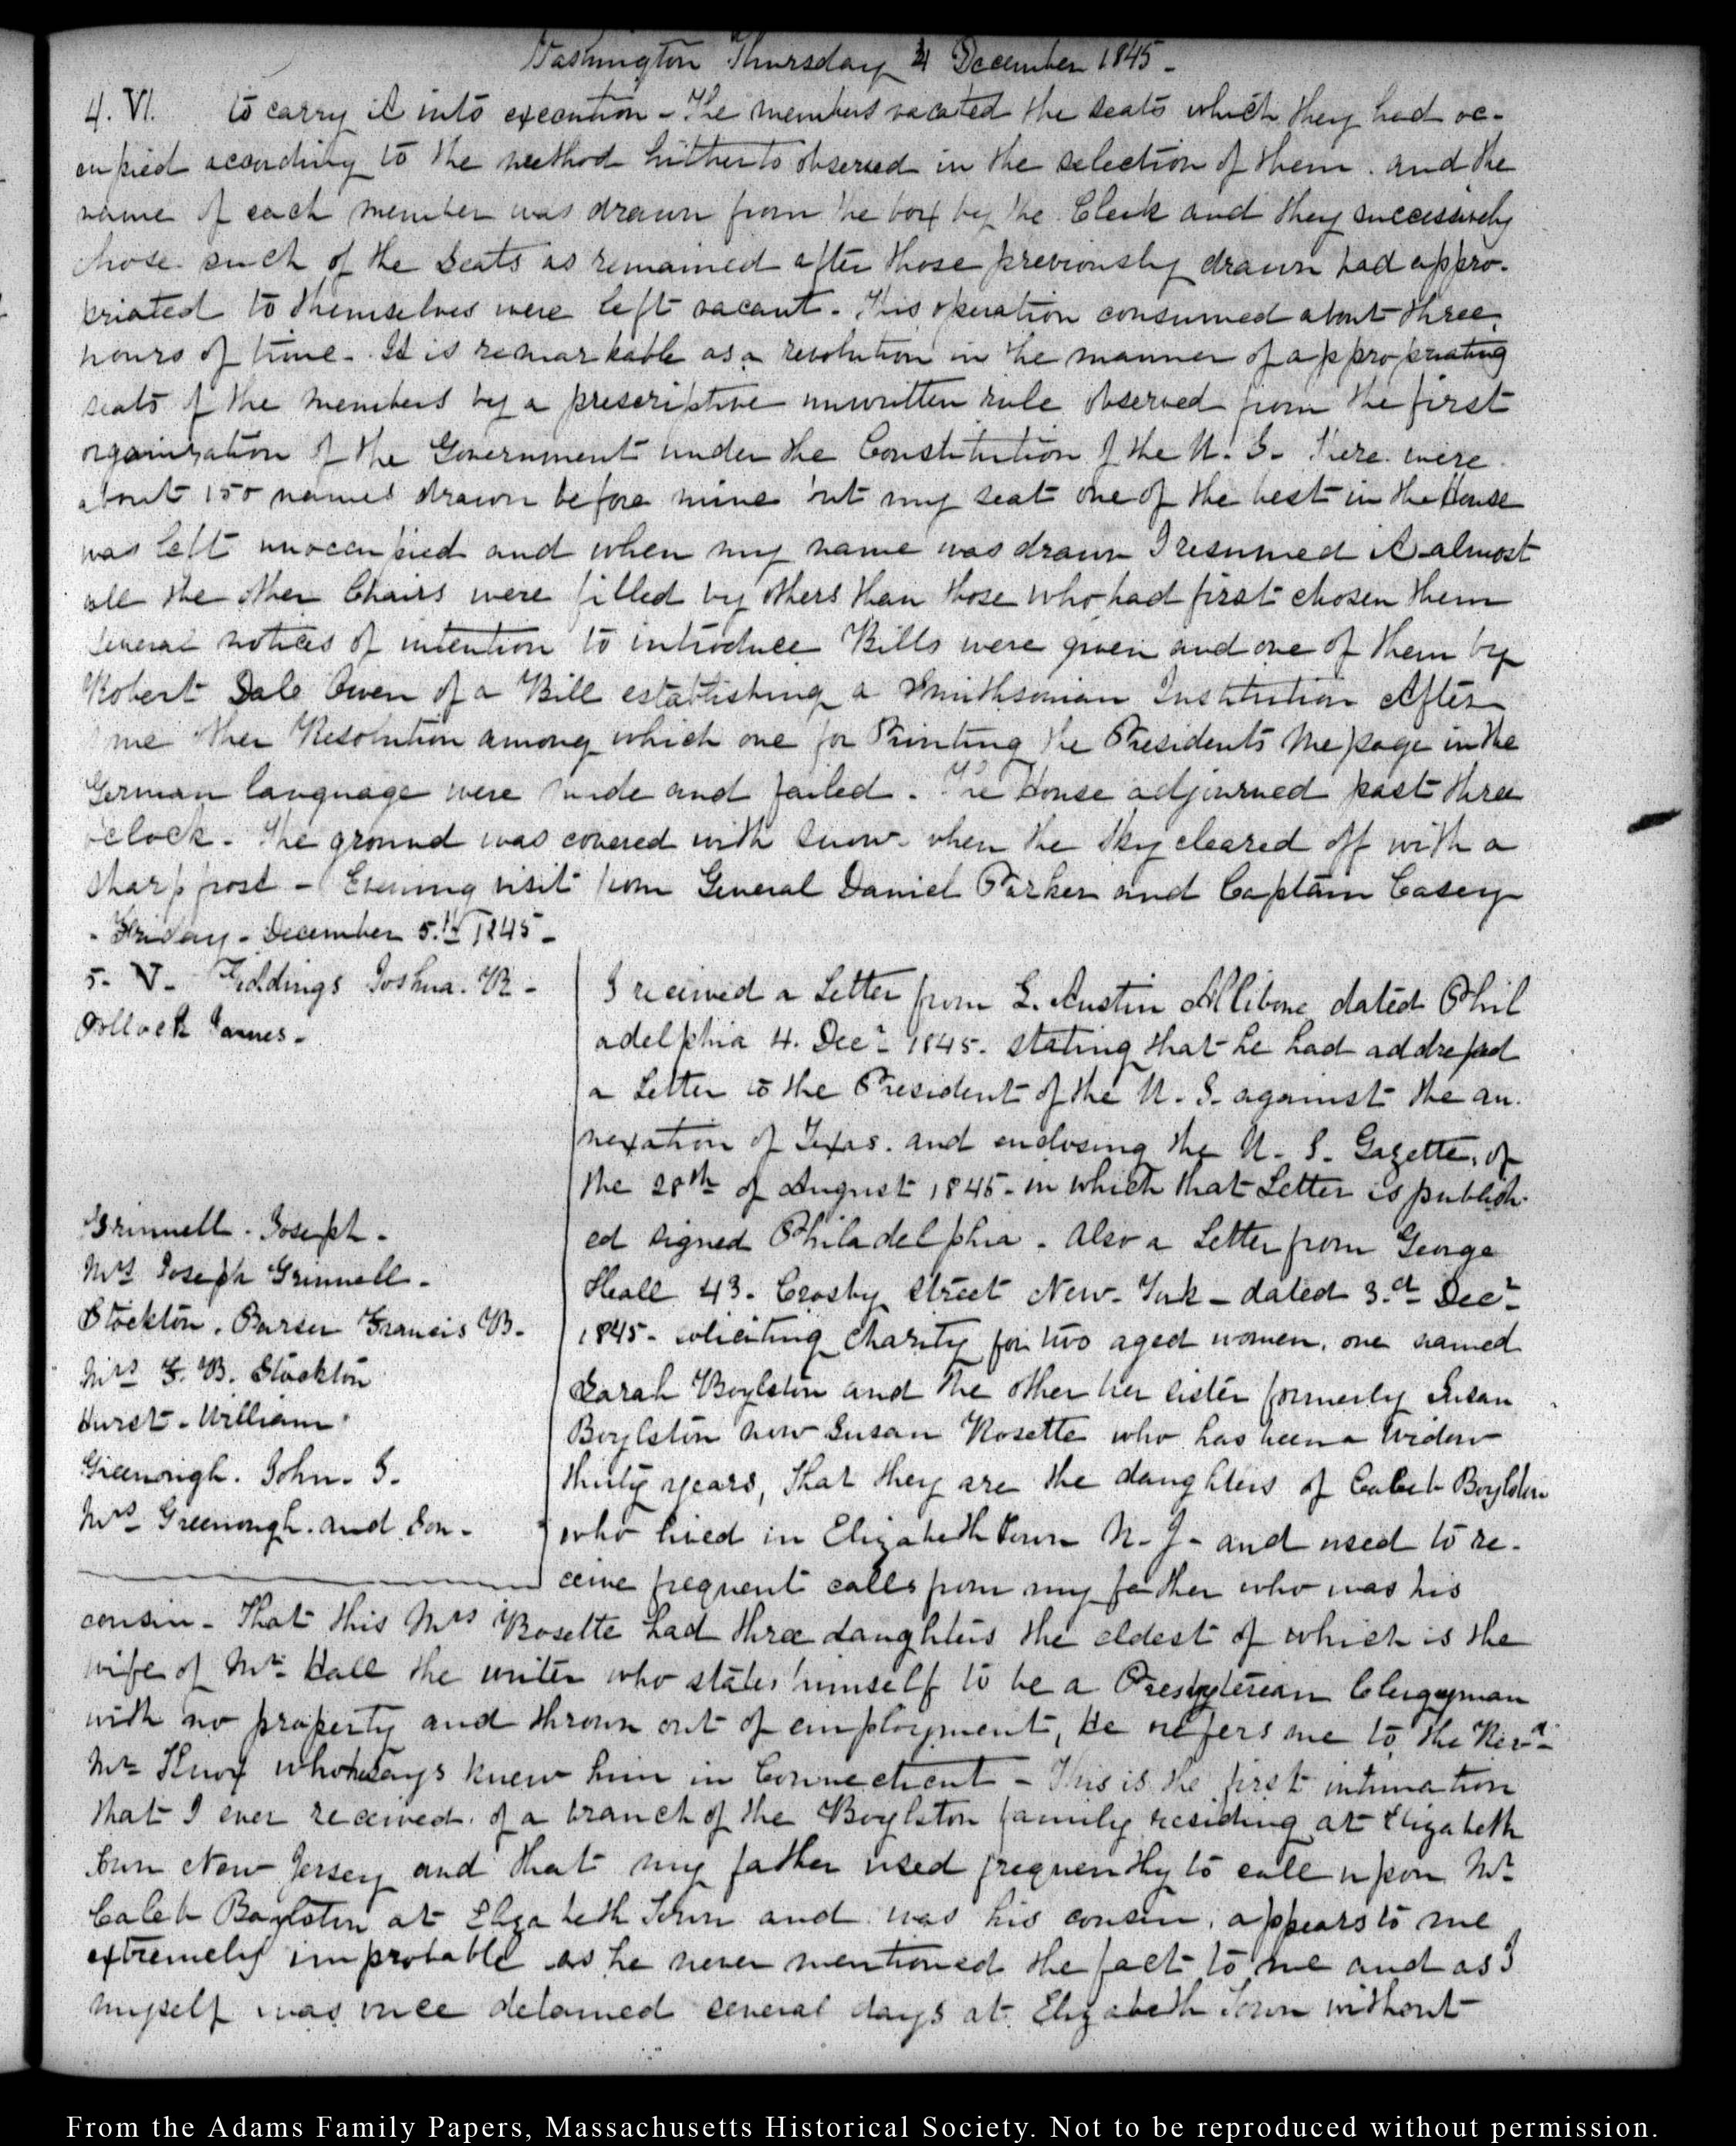 Washington Thursday 4 December 1845 -
4. VI. to carry it into execution - The members vacated the seats which they had oc-
cupied according to the method hitherto observed in the selection of them. and the
name of each member was drawn from the box by the Clerk and they successively
chose such of the seats as remained after those previously drawn had appro-
priated to themselves were left vacant. This operation consumed about three
hours of time. It is remarkable as a revolution in the manner of appropriating
seats of the members by a prescriptive unwritten rule observed from the first
organization of the Government under the Constitution of the U. S. There were
about 150 names drawn before mine but my seat one of the best in the House
was left unoccupied and when my name was drawn I resumed it almost
all the other Chairs were filled by others than those who had first chosen them
Several notices of intention to introduce Bills were given and one of them by
Robert Dale Owen of a Bill establishing a Smithsonian Institution After
some other Resolution among which one for Printing the Presidents Message in the
German language were made and failed. The House adjourned past three
o'clock. The ground was covered with snow when the sky cleared off with a
sharp frost - Evening visit from General Daniel Parker and Captain Casey
- Friday - December 5th 1845 -
5. V. Giddings Joshua. R -
Pollock James -
Grinnell. Joseph -
Mrs Joseph Grinnell -
Stockton. Purser Francis B.
Mrs F. B. Stockton
Hurst - William
Greenough. John. S.
Mrs Greenough. and Son -
I received a Letter from S. Austin Allibone dated Phil
adelphia 4. Decr 1845. stating that he had addressed
a Letter to the President of the U. S. against the an-
nexation of Texas. and enclosing the U. S. Gazette, of
the 28th of August 1845. in which that Letter is publish-
ed signed Philadelphia. Also a Letter from George
Hall 43. Crosby Street New-York - dated 3.d Decr
1845. soliciting charity for two aged women, one named
Sarah Boylston and the other her sister formerly Susan
Boylston now Susan Rosette who has been a widow
thirty years, that they are the daughters of Caleb Boylston
who lived in Elizabeth Town N. J - and used to re-
ceive frequent calls from my father who was his
cousin - That this Mrs Rosette had three daughters the eldest of which is the
wife of Mr Hall the writer who states himself to be a Presbyterian Clergyman
with no property and thrown out of employment, He refers me to the Revd
Mr Knox who he says knew him in Connecticut - This is the first intimation
that I ever received of a branch of the Boylston family residing at Elizabeth
town New Jersey and that my father used frequently to call upon Mr
Caleb Boylston at Elizabeth Town and was his cousin, appears to me
extremely improbable as he never mentioned the fact to me and as I
myself was once detained several days at Elizabeth Town without
From the Adams Family Papers, Massachusetts Historical Society. Not to be reproduced without permission.